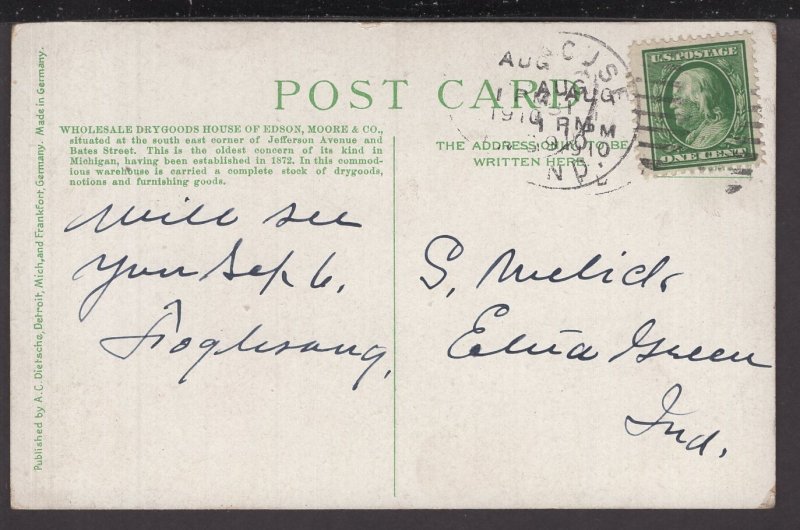 POST CARD
WHOLESALE DRYGOODS HOUSE OF EDSON, MOORE & CO.,
situated at the south east corner of Jefferson Avenue and
Bates Street. This is the oldest concern of its kind in
Michigan, having been established in 1872. In this commod-
ious warehouse is carried a complete stock of drygoods,
notions and furnishing goods.
Will see
you Sep 6.
Foglesong,
Published by A. C. Dietsche, Detroit, Mich., and Frankfort, Germany. Made in Germany.
AUG
1910
AUG
AUG
1 PM
PM
1910
IND.
U.S. POSTAGE
ONE CENT
THE ADDRESS ONLY TO BE
WRITTEN HERE
S, Melick
Etna Green
Ind.